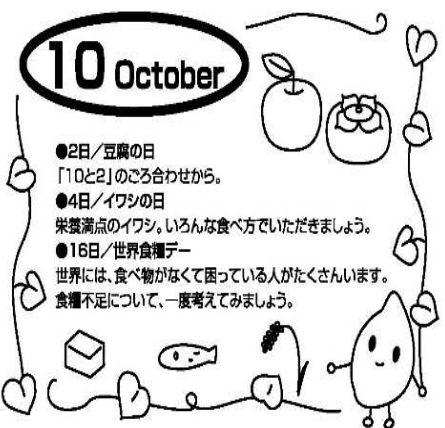 10 October
●2日/豆腐の日
「10と2」のごろ合わせから。
●4日/イワシの日
栄養満点のイワシ。いろんな食べ方でいただきましょう。
●16日/世界食糧デー
世界には、食べ物がなくて困っている人がたくさんいます。
食糧不足について、一度考えてみましょう。